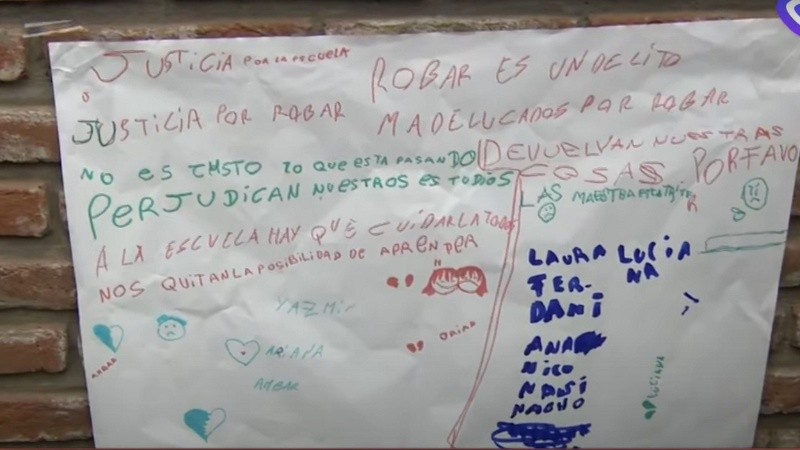 JUSTICIA POR LA ESCUELA
JUSTICIA POR ROBAR
NO ES IMSTO LO QUE ESTA PASANDO
PERJUDICAN NUESTROS ESTUDIOS
A LA ESCUELA HAY QUE CUIDARLA TODOS
NOS QUITAN LA POSIBILIDAD DE APRENDER
YAZMIN
ARIANA
AMBAR
AMBAR
ORIAN
ROBAR ES UN DELITO
MADELUCADOS POR ROBAR
DEVUELVAN NUESTRAS
COSAS PORFAVO
LAS MAESTRA
LAURA LUCIA
FER- NA
DANI
ANA
NICO
NASI
NACHO
LUCIANA